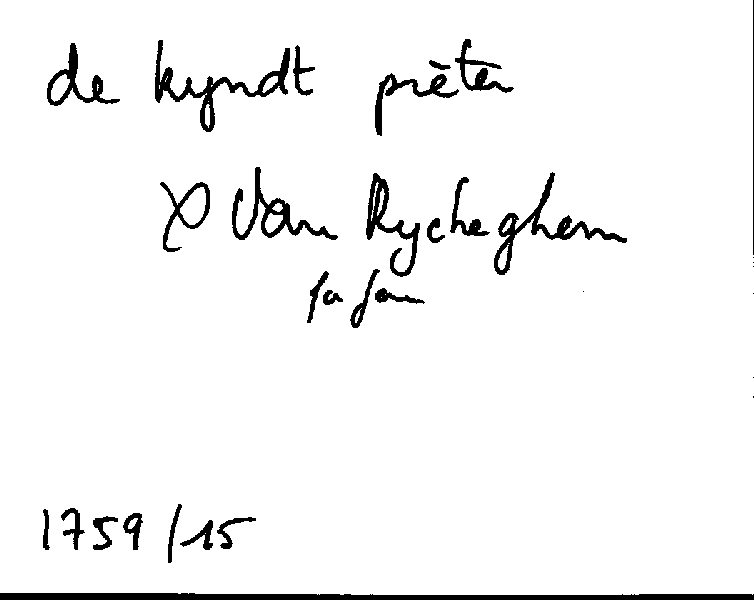 de Kyndt prêter
X Van Rycheghem
sa fam
1759/15